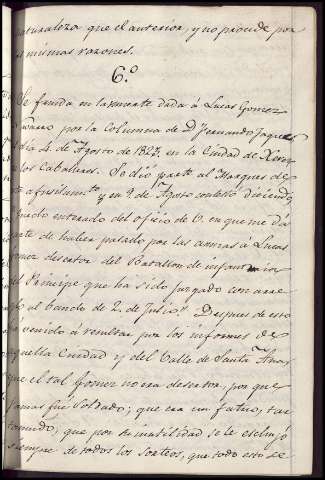 naturaleza que el anterior, y no procede por
s mismas razones.
6.º
Se funda en la muerte dada á Lucas Gomez
por la Columna de Dn Fernando
dia 4. de Agosto de 1823. en la Ciudad de Xerez
los Caballeros. Se dió parte al Marques de
y en 9. de Agosto contestó diciendo
enterado del oficio de V. en que me dá
de haber pasado por las armas á Lucas
desertor del Batallon de infanteria
el Principe que ha sido juzgado con arre
al bando de 2. de Julio." Despues de esto
venido á resultar por los informes de
quella Ciudad y del Valle de Santa Ana,
que el tal Gomez no era desertor, por que
jamas fué Soldado; que era un fatuo, tar
tamudo; que por su inutilidad se le escluyó
siempre de todos los sorteos, que todo esto se